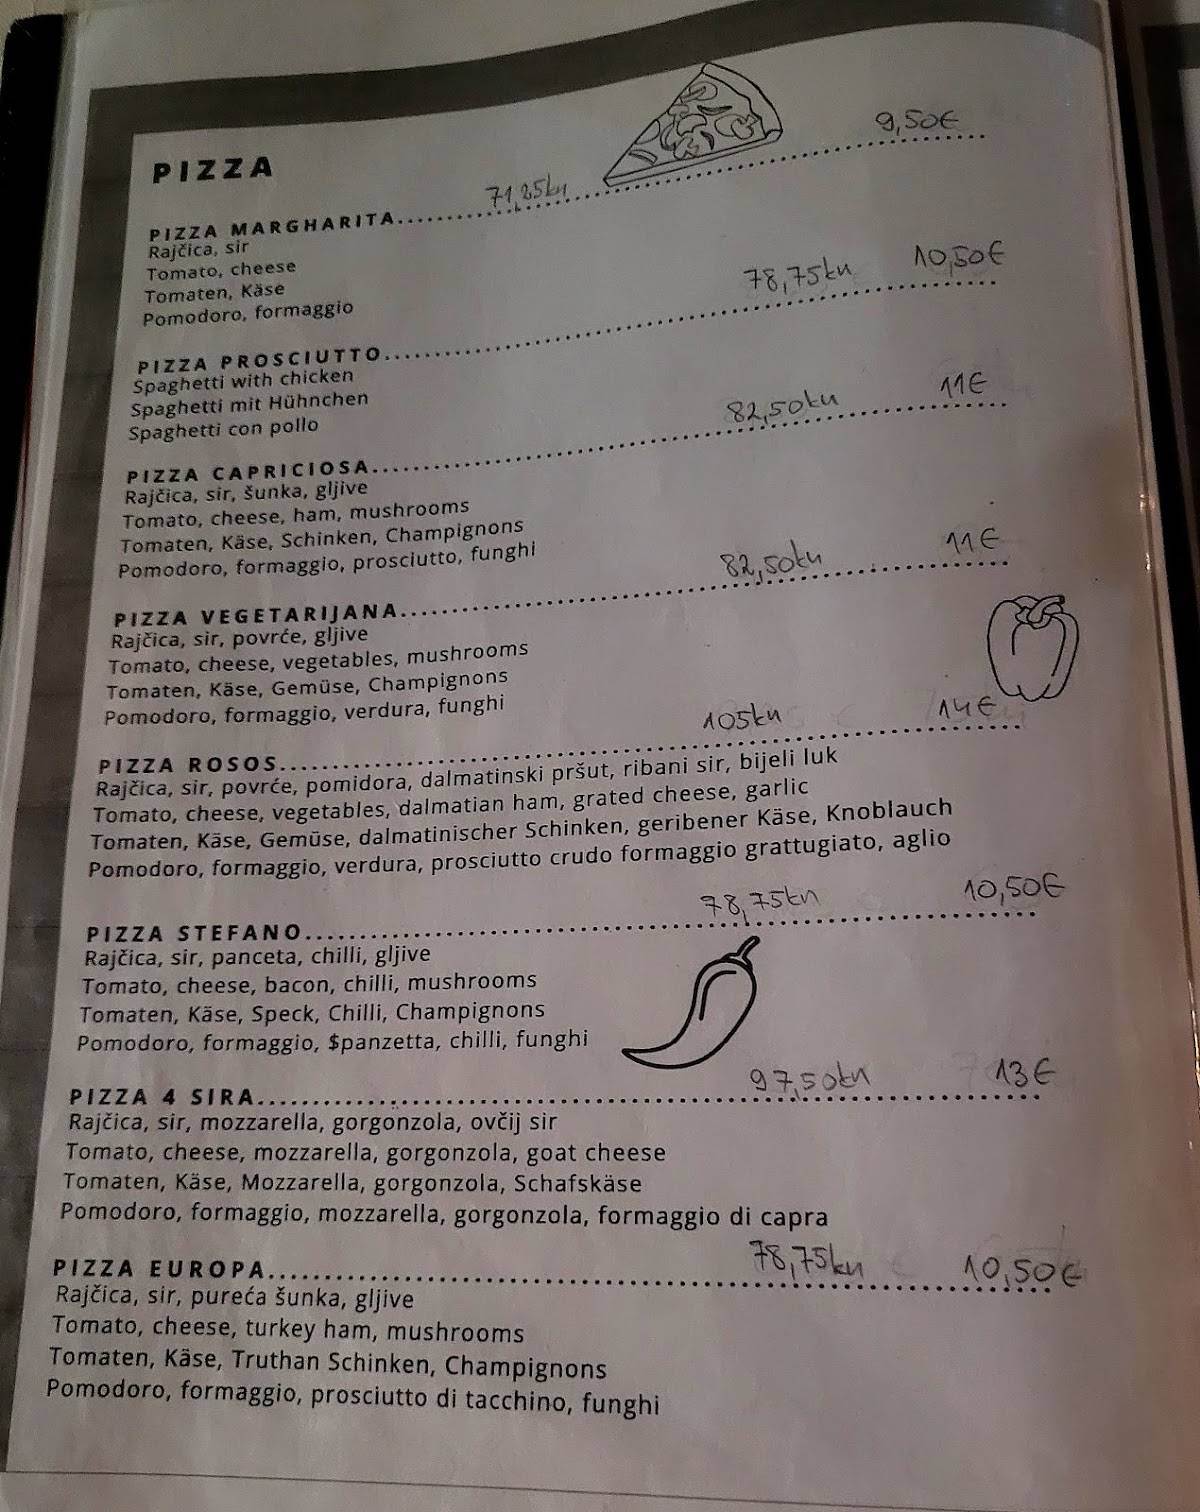 PIZZA
PIZZA MARGHARITA.......... 71,25kn 9,50€
Rajčica, sir
Tomato, cheese
Tomaten, Käse
Pomodoro, formaggio
PIZZA PROSCIUTTO.......... 78,75kn 10,50€
Spaghetti with chicken
Spaghetti mit Hühnchen
Spaghetti con pollo
PIZZA CAPRICIOSA.......... 82,50kn 11€
Rajčica, sir, šunka, gljive
Tomato, cheese, ham, mushrooms
Tomaten, Käse, Schinken, Champignons
Pomodoro, formaggio, prosciutto, funghi
PIZZA VEGETARIJANA.......... 82,50kn 11€
Rajčica, sir, povrće, gljive
Tomato, cheese, vegetables, mushrooms
Tomaten, Käse, Gemüse, Champignons
Pomodoro, formaggio, verdura, funghi
PIZZA ROSOS.......... 105kn 14€
Rajčica, sir, povrće, pomidora, dalmatinski pršut, ribani sir, bijeli luk
Tomato, cheese, vegetables, dalmatian ham, grated cheese, garlic
Tomaten, Käse, Gemüse, dalmatinischer Schinken, geribener Käse, Knoblauch
Pomodoro, formaggio, verdura, prosciutto crudo formaggio grattugiato, aglio
PIZZA STEFANO.......... 78,75kn 10,50€
Rajčica, sir, panceta, chilli, gljive
Tomato, cheese, bacon, chilli, mushrooms
Tomaten, Käse, Speck, Chilli, Champignons
Pomodoro, formaggio, $panzetta, chilli, funghi
PIZZA 4 SIRA.......... 97,50kn 13€
Rajčica, sir, mozzarella, gorgonzola, ovčij sir
Tomato, cheese, mozzarella, gorgonzola, goat cheese
Tomaten, Käse, Mozzarella, gorgonzola, Schafskäse
Pomodoro, formaggio, mozzarella, gorgonzola, formaggio di capra
PIZZA EUROPA.......... 78,75kn 10,50€
Rajčica, sir, pureća šunka, gljive
Tomato, cheese, turkey ham, mushrooms
Tomaten, Käse, Truthan Schinken, Champignons
Pomodoro, formaggio, prosciutto di tacchino, funghi